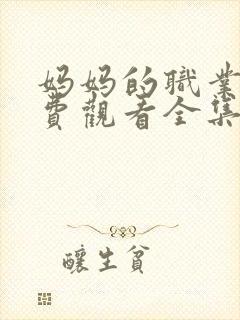 妈妈的職業
費觀看全集
釀生贫